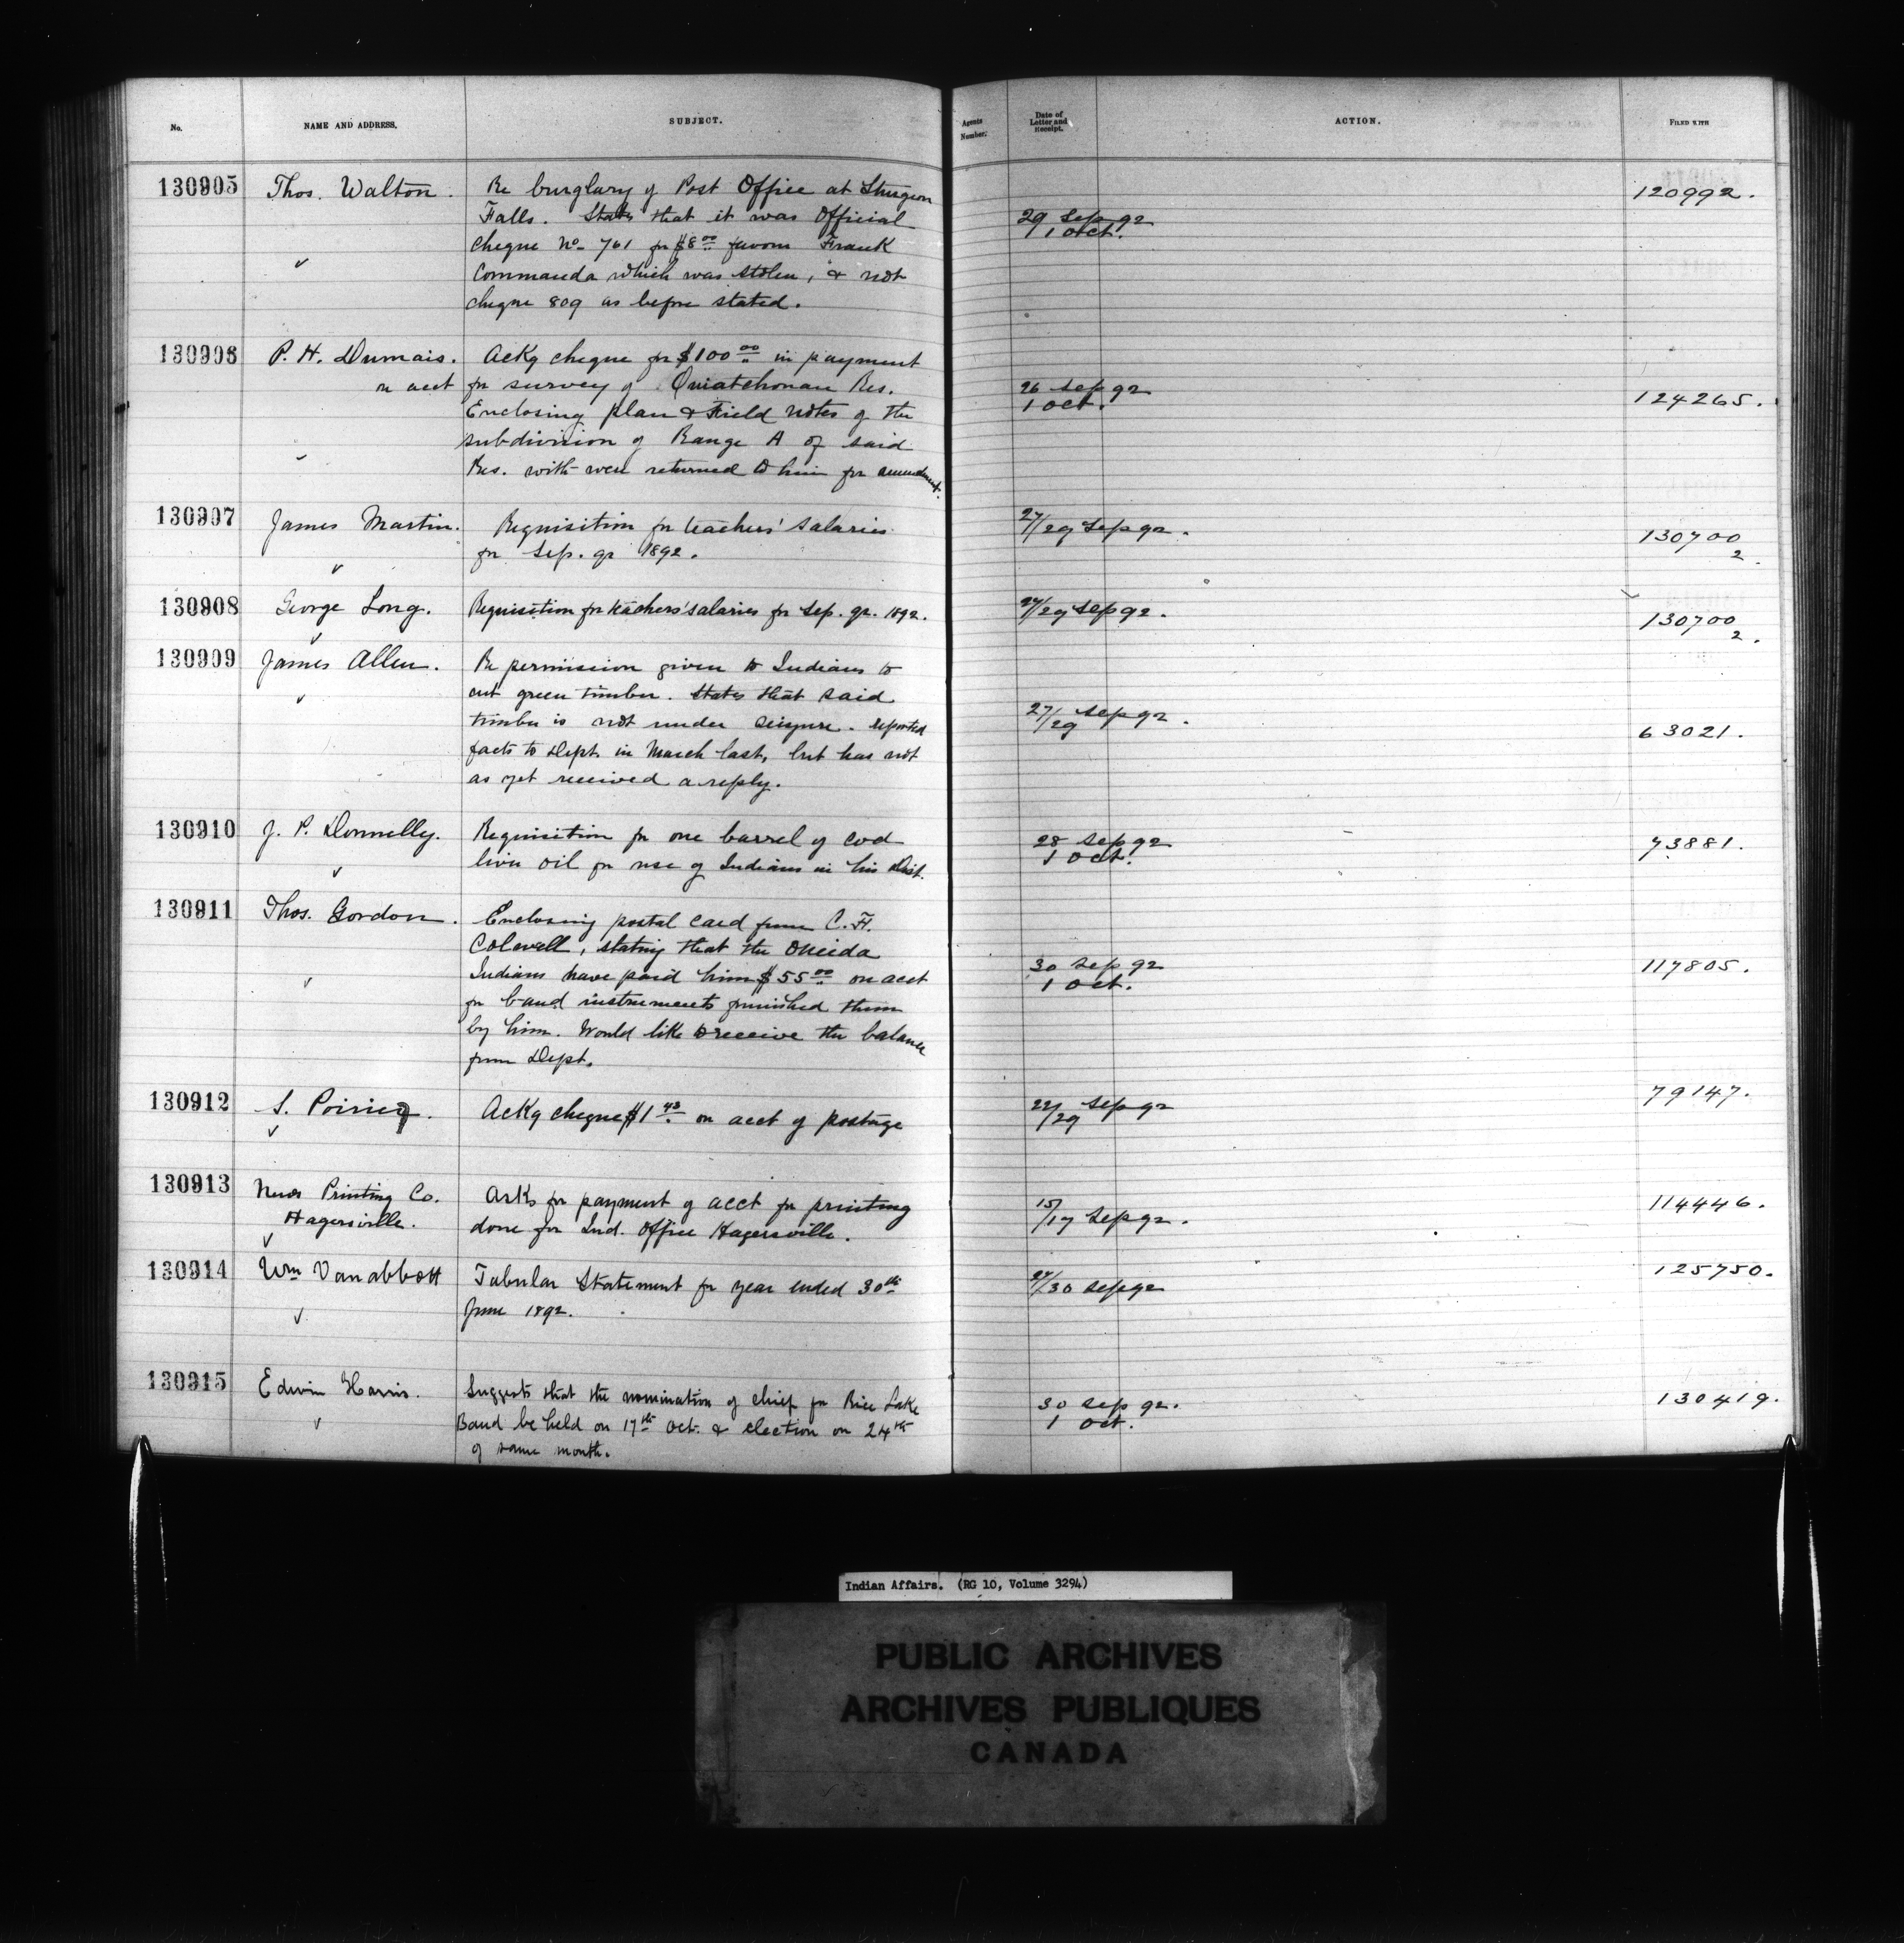 No. NAME AND ADDRESS. SUBJECT. Agents Number. Date of Letter and Receipt. ACTION. FILED WITH
130905 Thos. Walton. Re burglary of Post Office at Sturgeon 120992.
Falls. States that it was Official 29 Sep 92
cheque No. 761 for $8.00 favour Frank 1 Oct.
Commanda which was stolen, & not
cheque 809 as before stated.
130906 P. H. Dumais. Ackg cheque for $100.00 in payment
on acct for survey of Ouiatchouan Res. 26 Sep 92 124265.
Enclosing plan & Field notes of the 1 Oct.
subdivision of Range A of said
Res. with were returned to him for amendment.
130907 James Martin. Requisition for teachers' salaries 27/29 Sep 92. 130700
for Sep. qr 1892. 2.
130908 George Long. Requisition for teachers' salaries for Sep. qr. 1892. 27/29 Sep 92. 130700
2.
130909 James Allen. Re permission given to Indians to
cut green timber. States that said
timber is not under seizure. Reported 27/29 Sep 92. 63021.
facts to Dept. in March last, but has not
as yet received a reply.
130910 J. P. Donnelly. Requisition for one barrel of cod 28 Sep 92 73881.
liver oil for use of Indians in his Dist. 1 Oct.
130911 Thos. Gordon. Enclosing postal card from C. F.
Colwell, stating that the Oneida
Indians have paid him $55.00 on acct 30 Sep 92 117805.
for band instruments furnished them 1 Oct.
by him. Would like to receive the balance
from Dept.
130912 S. Poirier. Ackg cheque $1.43 on acct of postage 22/29 Sep 92 79147.
130913 News Printing Co. Asks for payment of acct for printing 15/17 Sep 92. 114446.
Hagersville. done for Ind. Office Hagersville.
130914 Wm Vanabbott Tabular Statement for year ended 30th 27/30 Sep 92 125750.
June 1892.
130915 Edwin Harris. Suggests that the nomination of chief for Rice Lake 30 Sep 92. 130419.
Band be held on 17th Oct. & election on 24th 1 Oct.
of same month.
Indian Affairs. (RG 10, Volume 3294)
PUBLIC ARCHIVES
ARCHIVES PUBLIQUES
CANADA